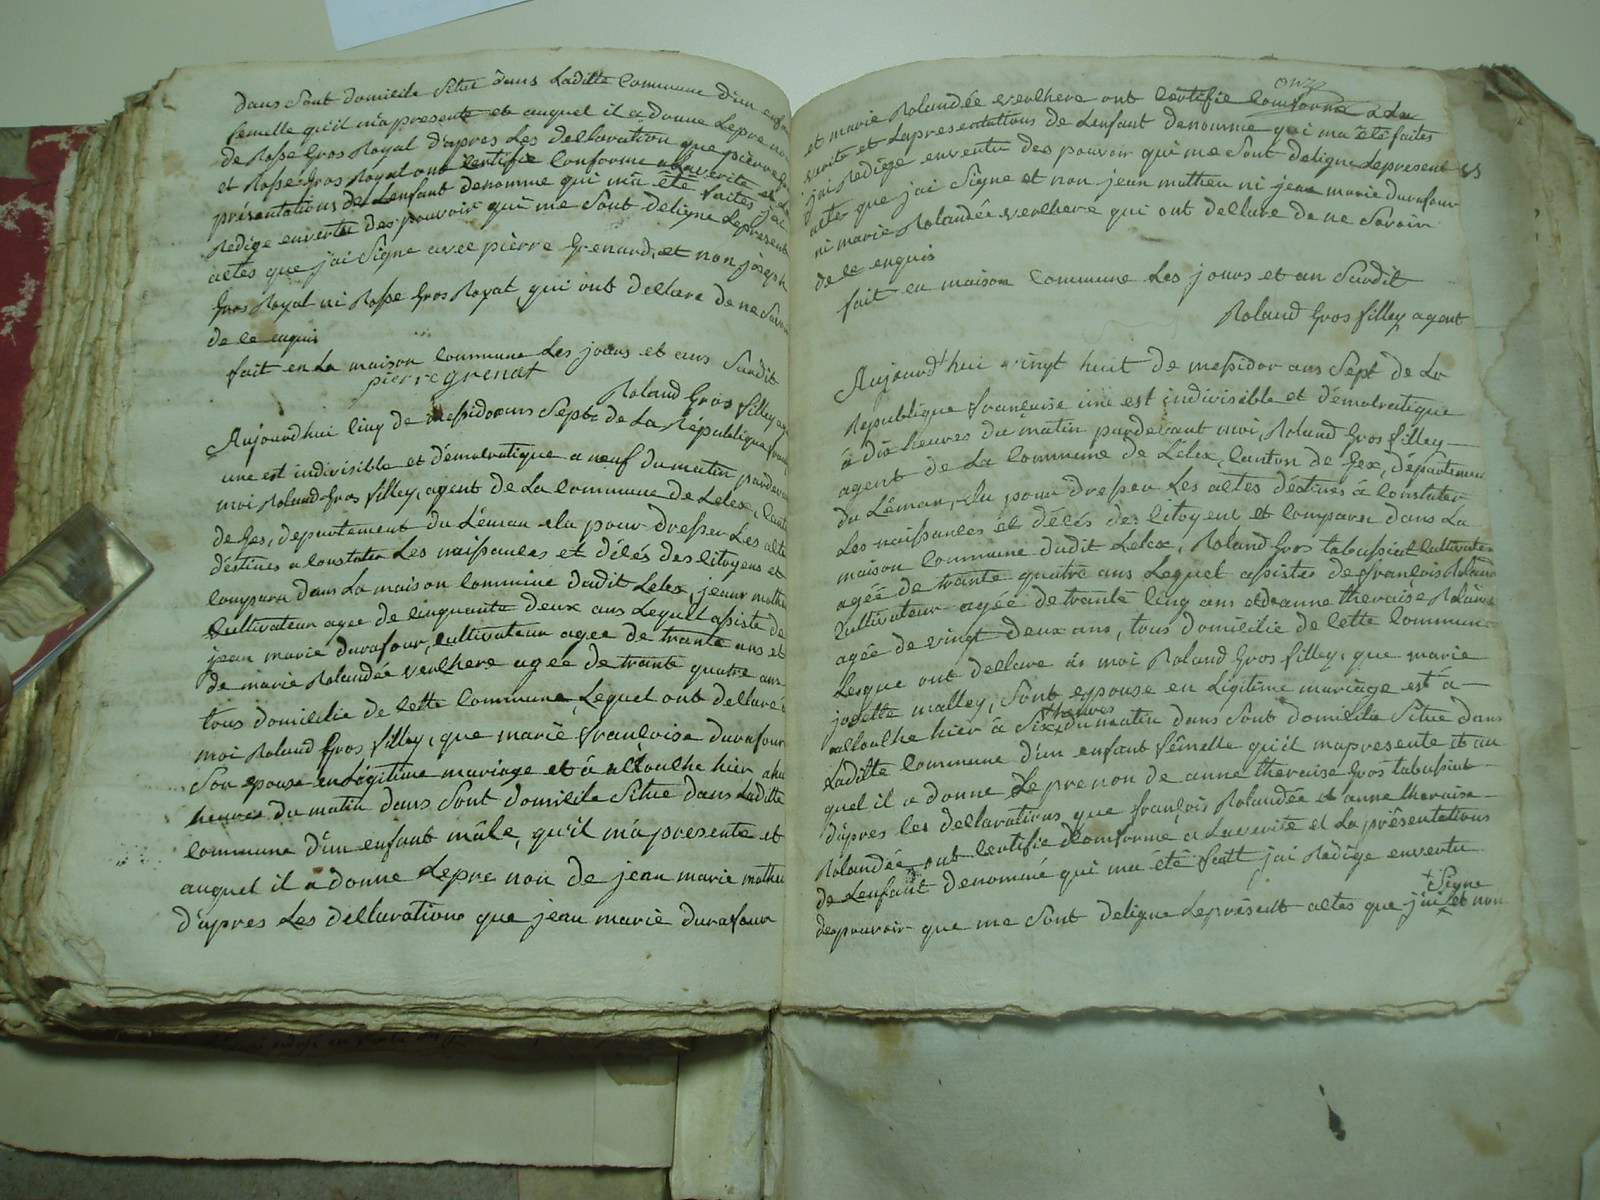 dans sont domicile situe dans Laditte Commune d'un enfan
femelle qu'il m'apresente et auquel il a donne Lepre non
de Rosse Gros Royal d'apres Les dellaration que pierre
et Rosse Gros Royal ont certifie Conforme alaverite et La
présentations de L'enfant denomme qui m'a été faites j'ai
Redige envertu des pouvoir qui me sont deligne Lepresent
altes que j'ai Signe avec pièrre Grenard, et non joseph
Gros Royal ni Rosse Gros Royal qui ont dellare de ne Savoir
de ce enquis
fait en La maison Commune Les jours et ans Susdit
pierre grenat
Roland Gros filley
Aujourdhui Cinq de Messidor ans Sept de La République
une est indivisible et démolratique a neuf du matin pardevan
moi Roland Gros filley, agent de La Commune de Lelex, Canto
de Gex, département du Léman elu pour dresser Les alte
déstines a Constater Les naissanles et délés des Citoyens et
Comparu dans La maison Commune dudit Lelex, jeans mathe
Cultivateur agee de Cinquante deux ans Lequel assiste de
jean marie durafour, Cultivateur agee de trante ans et
de marie Rolandée verlhere agée de trante quatre ans
tous domicilie de Cette Commune, Lequel ont dellare à
moi Roland Gros filley, que marie françoise durafour
Son epouse en Légitime mariage et à alloulhe hier, a
heures du matin dans Sont domicile Situe dans Laditte
Commune d'un enfant mâle, qu'il m'apresente et
auquel il a donne Lepre non de jean marie mathe
d'apres Les dellaration que jean marie durafour
onze
et marie Rolandée verlhere ont Certifie Conforme a La
verite et Lapresentations de L'enfant denomme qui ma été faites
j'ai Redige envertu des pouvoir qui me Sont deligne Lepresent
altes que j'ai Signe et non jean mathieu ni jean marie durafour
ni marie Rolandée verlhere qui ont dellare de ne Savoir
de ce enquis
fait en maison Commune Les jours et an Susdit
Roland Gros filley agent
Aujourd'hui vingt huit de messidor ans Sept de La
République française une est indivisible et démolratique
à dix heures du matin pardevant moi, Roland Gros filley
agent de La Commune de Lélex, Canton de Gex, départemen
du Léman, elu pour dresser Les altes déstines à Constater
Les naissanles et délés des Citoyens et Comparu dans La
maison Commune dudit Lelex, Roland Gros tabussiat Cultivate
agée de trante quatre ans Lequel assiste de françois Roland
Cultivateur agée de trante Cinq ans et de anne theraise Rolan
agée de vingt deux ans, tous domicilie de Cette Commune
Lesque ont dellare à moi Roland Gros filley, que marie
josette malley, Sont epouse en Légitime mariage est à
allouLhe hier à Six heures du matin dans Sont domicile Situe dans
Laditte Commune d'un enfant fêmelle qu'il mapresente et au
quel il a donne Leprenon de anne theraise Gros tabussiat
d'apres les dellarations que françois Rolandée et anne theraise
Rolandée ont Certifie Conforme a Laverite et La présentations
de L'enfant denomné qui ma été fait j'ai Rédige envertu
des pouvoir que me Sont deligne Leprésent altes que j'ai Signe et non